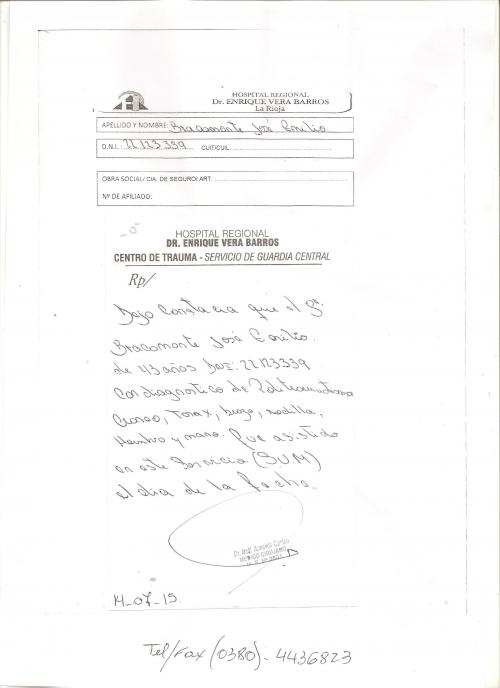 HOSPITAL REGIONAL
Dr. ENRIQUE VERA BARROS
La Rioja
APELLIDO Y NOMBRE: Bracamonte José Emilio
D.N.I.: 22123339 CUIT/CUIL:
OBRA SOCIAL/ CIA. DE SEGURO/ ART:
Nº DE AFILIADO:
HOSPITAL REGIONAL
DR. ENRIQUE VERA BARROS
CENTRO DE TRAUMA - SERVICIO DE GUARDIA CENTRAL
Rp/
Dejo constacia que el Sr.
Bracamonte José Emilio.
de 43 años DNI: 22123339
Con diagnostico de Politraumatismo
Craneo, Torax, brazo, rodilla,
Hombro y mano. Fue asistido
en este Servicio (SUM)
el día de la fecha.
MEDICO CIRUJANO
14-07-15
Tel/Fax (0380)-4436823